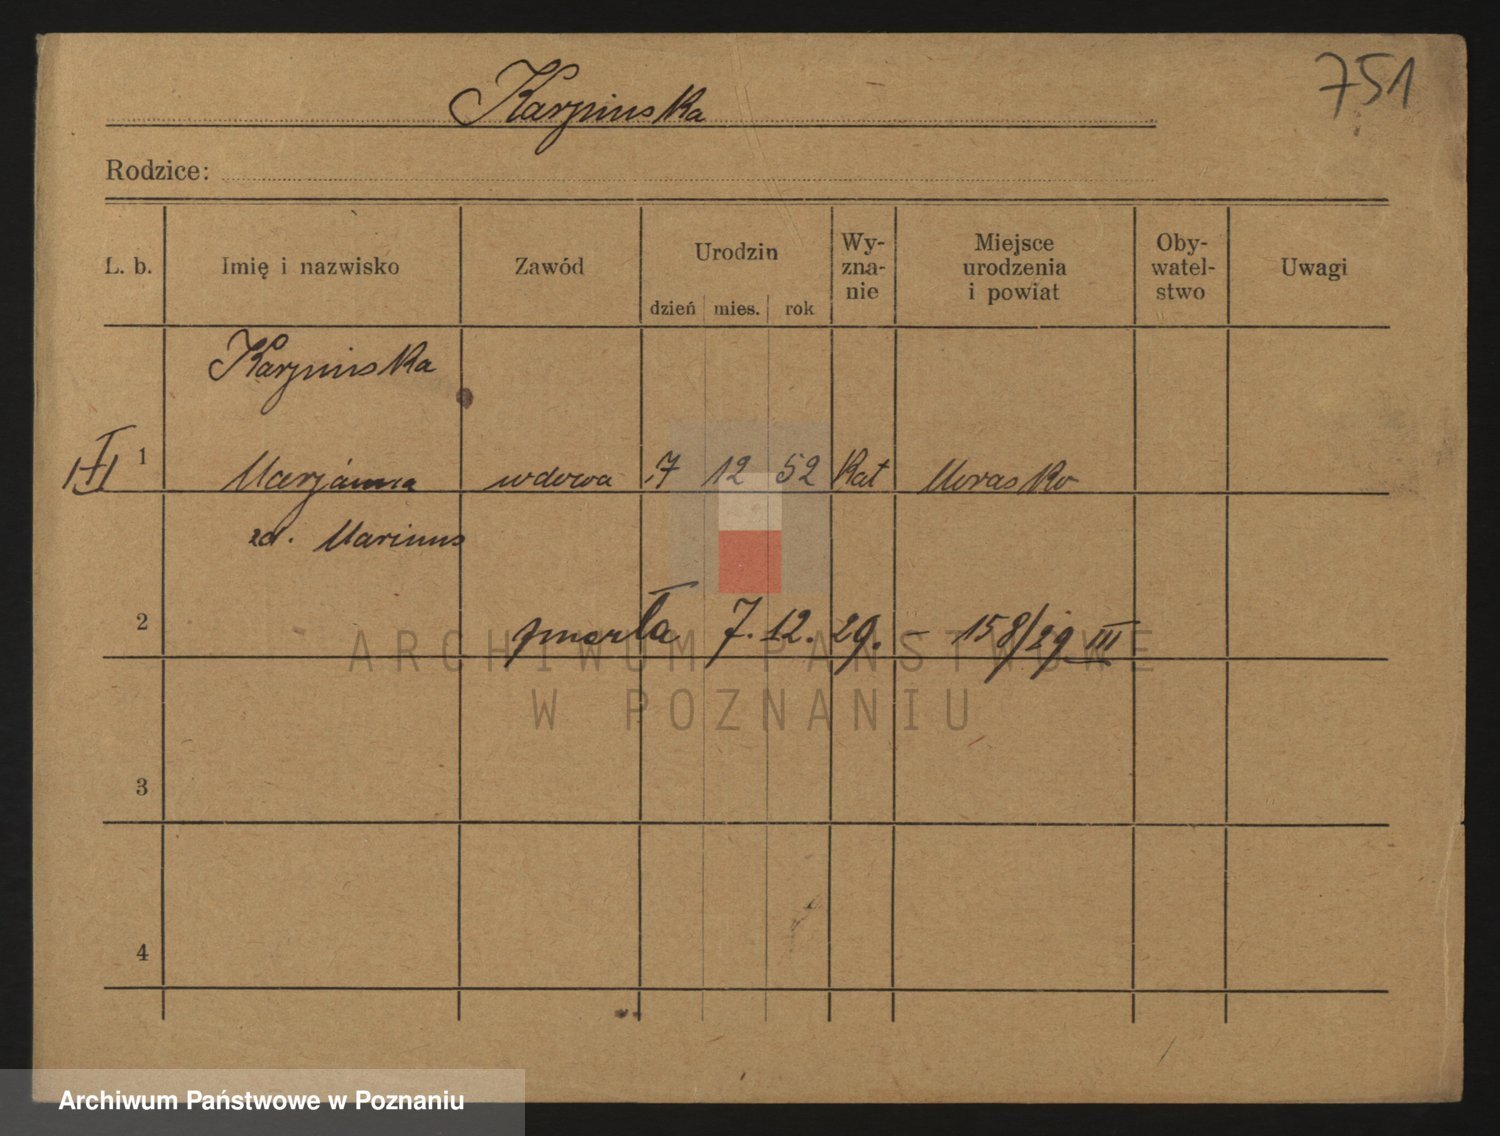 Karpinska
751
Rodzice:
L. b.
Imię i nazwisko
Zawód
Urodzin
dzień mies. rok
Wy-
zna-
nie
Miejsce
urodzenia
i powiat
Oby-
watel-
stwo
Uwagi
Karpinska
1 Marjanna wdowa 7 12 52 Kat Morasko
zd. Marinus
2 zmarła 7. 12. 29. – 158/29 III
ARCHIWUM PAŃSTWOWE
W POZNANIU
3
4
Archiwum Państwowe w Poznaniu